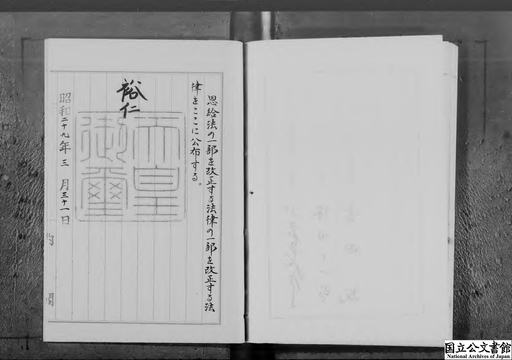 恩給法の一部を改正する法律の一部を改正する法
律をここに公布する。
裕仁
天皇
御璽
昭和二十九年三月三十一日
国立公文書館
National Archives of Japan